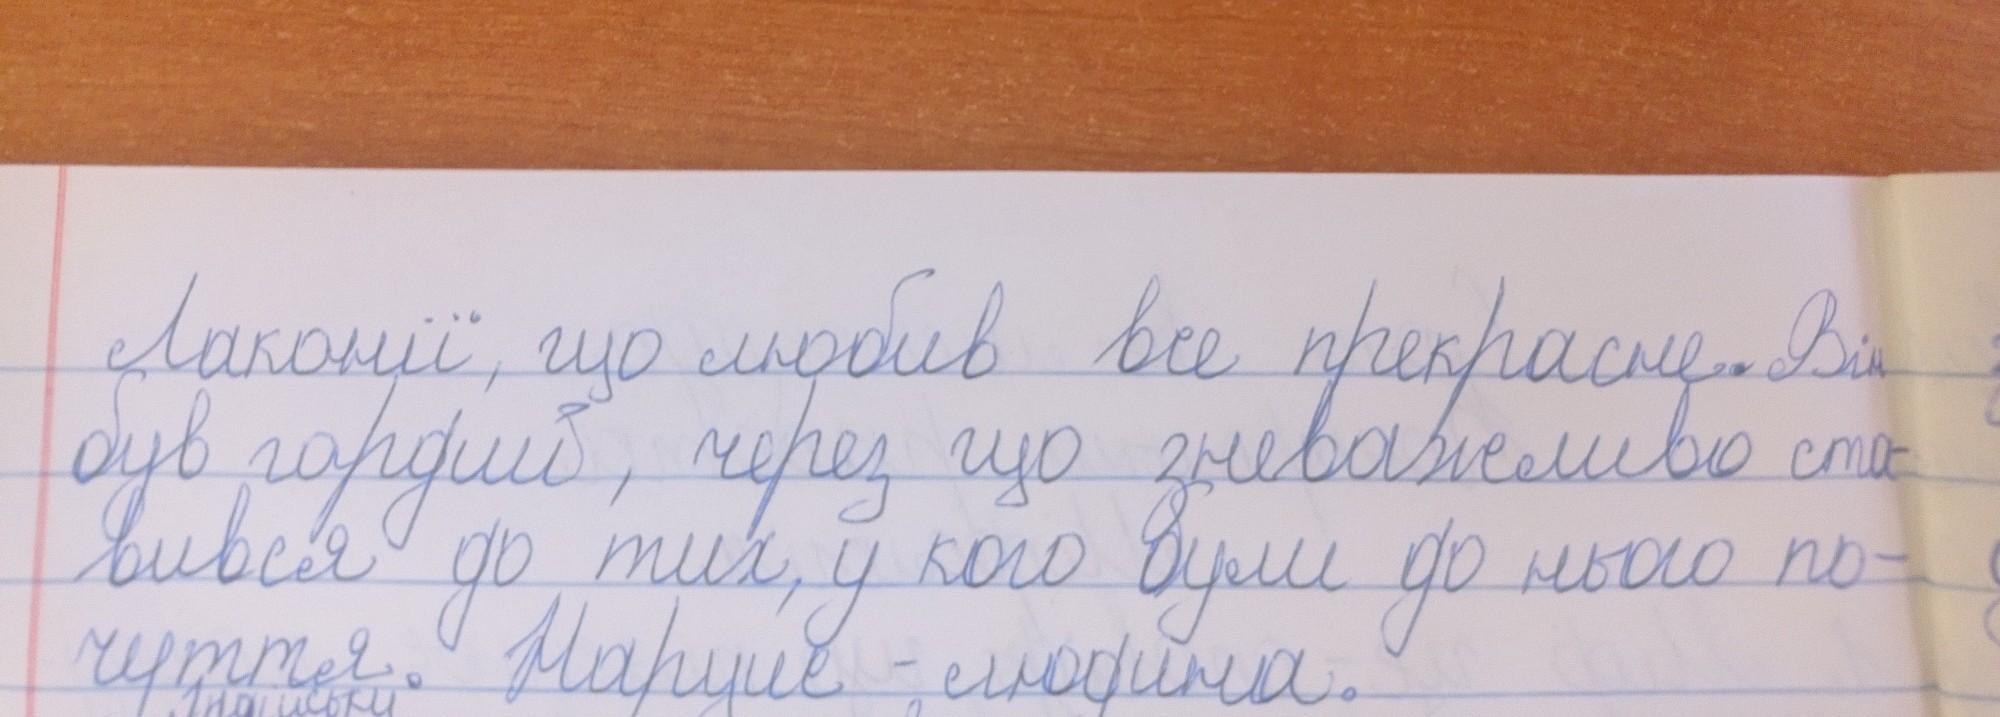 Лаконії, що любив все прекрасне. Він
був гордий, через що зневажеливо ста-
вився до тих, у кого були до нього по-
чуття. Нарцис - людина.